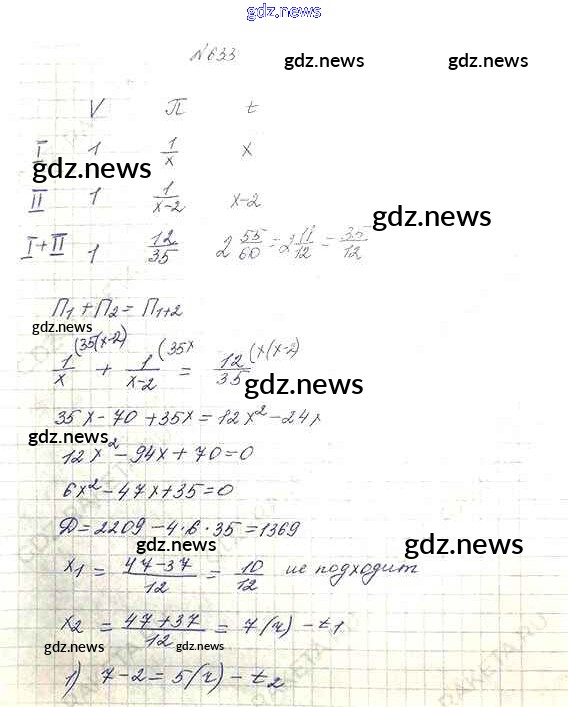 gdz.news
№633
gdz.news gdz.news
V П t
I 1 1/x x
gdz.news
II 1 1/(x-2) x-2
gdz.news
I+II 1 12/35 2 55/60 = 2 11/12 = 35/12
П₁ + П₂ = П₁₊₂
gdz.news
1/x (35(x-2) + 1/(x-2) (35x = 12/35 (x(x-2)
gdz.news
35x - 70 + 35x = 12x² - 24x
gdz.news
12x² - 94x + 70 = 0
6x² - 47x + 35 = 0
Д = 2209 - 4·6·35 = 1369
gdz.news gdz.news
x₁ = (47-37)/12 = 10/12 не подходит
x₂ = (47+37)/12 = 7(ч) - t₁
gdz.news gdz.news
1) 7-2 = 5(ч) - t₂
RAKETA.RU